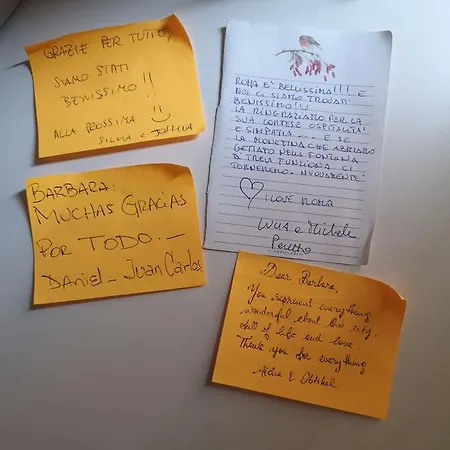 GRAZIE PER TUTTO,
SIAMO STATI
BENISSIMO!!
ALLA PROSSIMA
SILVIA e
ROMA E' BELLISSIMA!!! E
NOI CI SIAMO TROVATI
BENISSIMO!!!
LA RINGRAZIAMO PER LA
SUA CORTESE OSPITALITÀ
E SIMPATIA..... E SE
LA MONETINA CHE ABBIAMO
GETTATO NELLA FONTANA
DI TREVI FUNZIONA CI
TORNEREMO NUOVAMENTE.
I LOVE ROMA
LUCIA e Michele
BARBARA:
MUCHAS GRACIAS
POR TODO.-
DANIEL - JUAN CARLOS
Dear Barbara,
You represent everything
wonderful about this city -
full of life and love.
Thank you for everything
&